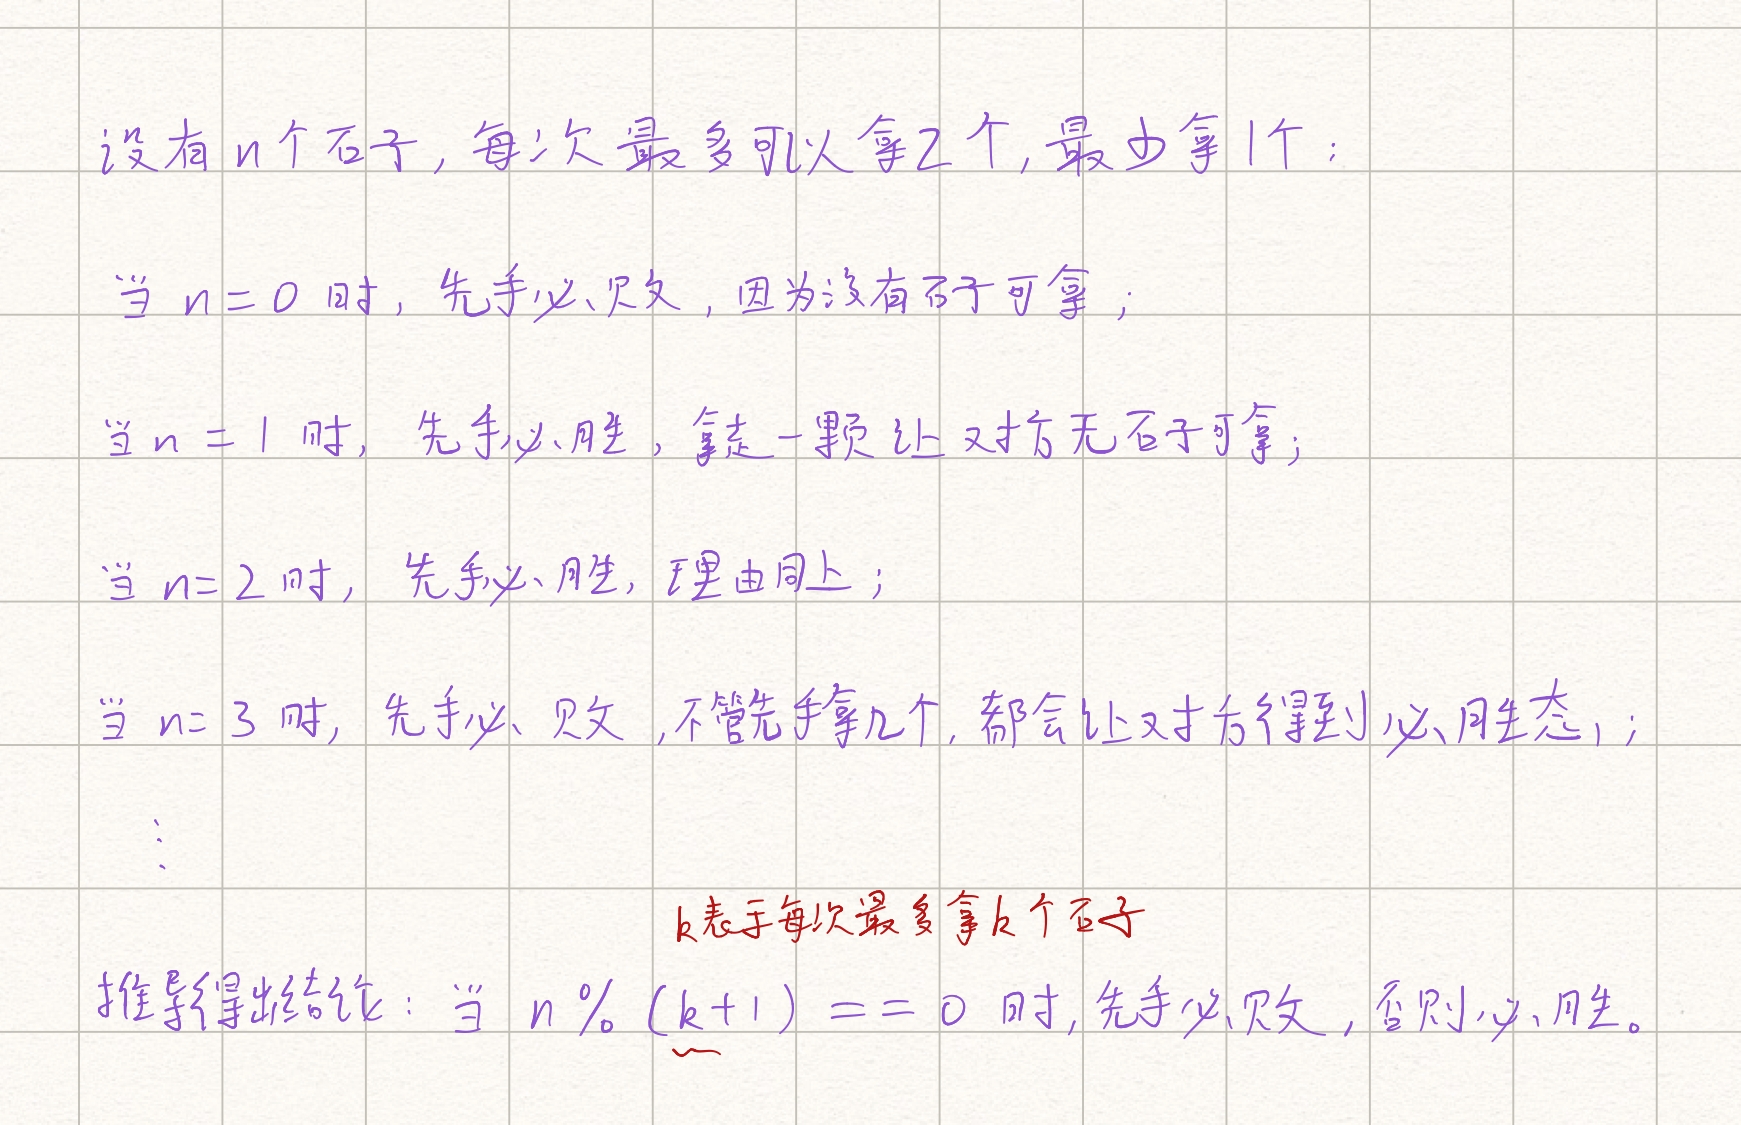 设有n个石子,每次最多可以拿2个,最少拿1个:
当n=0时,先手必败,因为没有石子可拿;
当n=1时,先手必胜,拿走一颗让对方无石子可拿;
当n=2时,先手必胜,理由同上;
当n=3时,先手必败,不管先手拿几个,都会让对方得到必胜态,;
⋮
k表示每次最多拿k个石子
推导得出结论:当 n%(k+1)==0时,先手必败,否则必胜。